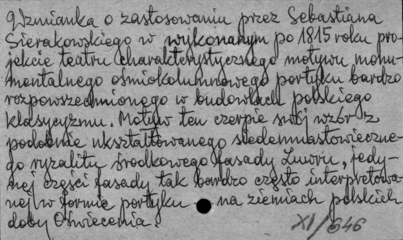 Wzmianka o zastosowaniu przez Sebastiana
Sierakowskiego w wykonanym po 1815 roku pro-
jekcie teatru charakterystycznego motywu monu-
mentalnego ośmiokolumnowego portyku bardzo
rozpowszechnionego w budowlach polskiego
klasycyzmu. Motyw ten czerpie swój wzór z
podobnie ukształtowanego siedemnastowieczne-
go ryzalitu środkowego fasady Luwru, jedy-
nej części fasady tak bardzo często interpretowa-
nej w formie portyku na ziemiach polskich
doby Oświecenia.
XI/646